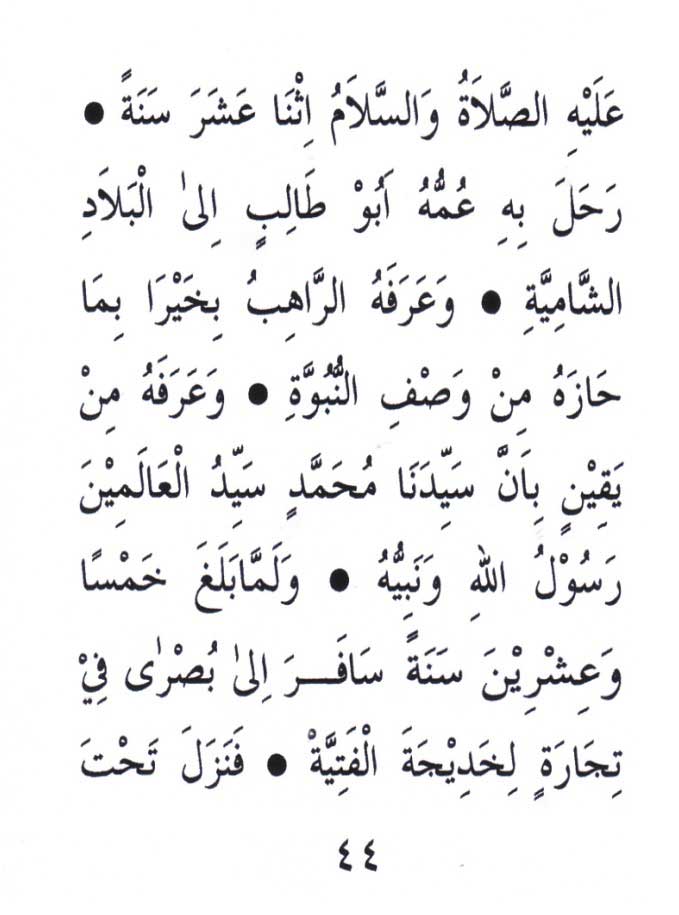 عَلَيْهِ الصَّلَاةُ وَالسَّلَامُ اِثْنَا عَشَرَ سَنَةً ●
رَحَلَ بِهِ عُمُّهُ اَبُوْ طَالِبٍ اِلىٰ الْبَلَادِ
الشَّامِيَّةِ ● وَعَرَفَهُ الرَّاهِبُ بِخَيْرَا بِمَا
حَازَهُ مِنْ وَصْفِ النُّبُوَّةِ ● وَعَرَفَهُ مِنْ
يَقِيْنٍ بِاَنَّ سَيِّدَنَا مُحَمَّدٍ سَيِّدُ الْعَالَمِيْنَ
رَسُوْلُ اللهِ وَنَبِيُّهُ ● وَلَمَّابَلَغَ خَمْسًا
وَعِشْرِيْنَ سَنَةً سَافَـــرَ اِلىٰ بُصْرٰى فِيْ
تِجَارَةٍ لِخَدِيْجَةَ الْفَتِيَّةْ ● فَنَزَلَ تَحْتَ
٤٤